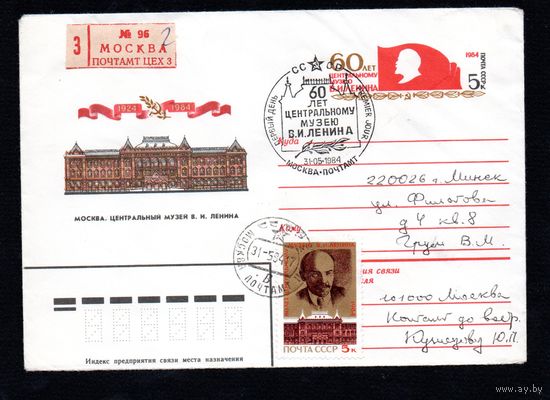 № 96
З МОСКВА 2
ПОЧТАМТ ЦЕХ 3
1924 1984
МОСКВА. ЦЕНТРАЛЬНЫЙ МУЗЕЙ В. И. ЛЕНИНА
60 ЛЕТ
ЦЕНТРАЛЬНОМУ
МУЗЕЮ
В.И.ЛЕНИНА
1984
ПОЧТА СССР
5 К
СССР
ПЕРВЫЙ ДЕНЬ
PREMIER JOUR
60
ЛЕТ
ЦЕНТРАЛЬНОМУ
МУЗЕЮ
В.И.ЛЕНИНА
31-05-1984
МОСКВА-ПОЧТАМТ
Куда
220026 г. Минск
ул. Филатова
д 4 кв. 8
Кому
В. М.
МОСКВА
ПОЧТАМТ
В.И.ЛЕНИНА
ПОЧТА СССР 5 К
связи
101000 Москва
до востр.
Кузнецову Ю.П.
Индекс предприятия связи места назначения
www.ay.by